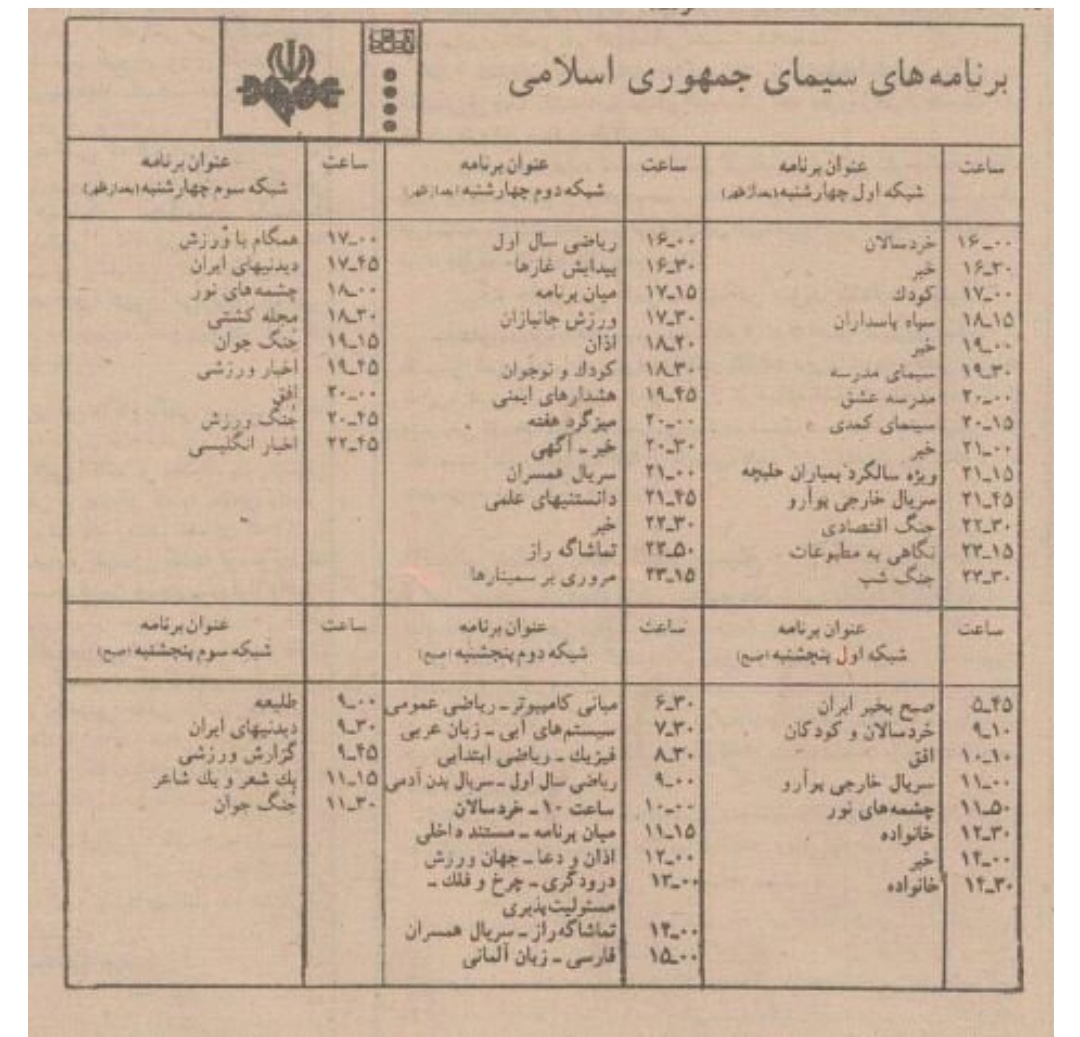 برنامه های سیمای جمهوری اسلامی
ساعت
عنوان برنامه
شبکه اول چهارشنبه (بعدازظهر)
۱۶_۰۰ خردسالان
۱۶_۳۰ خبر
۱۷_۰۰ کودك
۱۸_۱۵ سپاه پاسداران
۱۹_۰۰ خبر
۱۹_۳۰ سیمای مدرسه
۲۰_۰۰ مدرسه عشق
۲۰_۱۵ سینمای کمدی
۲۱_۰۰ خبر
۲۱_۱۵ ویژه سالگرد بمباران حلبچه
۲۱_۴۵ سریال خارجی پوآرو
۲۲_۳۰ جنگ اقتصادی
۲۳_۱۵ نگاهی به مطبوعات
۲۳_۳۰ جنگ شب
ساعت
عنوان برنامه
شبکه دوم چهارشنبه (بعدازظهر)
۱۶_۰۰ ریاضی سال اول
۱۶_۳۰ پیدایش غارها
۱۷_۱۵ میان برنامه
۱۷_۳۰ ورزش جانبازان
۱۸_۲۰ اذان
۱۸_۳۰ کودك و نوجوان
۱۹_۴۵ هشدارهای ایمنی
۲۰_۰۰ میزگرد هفته
۲۰_۳۰ خبر ـ آگهی
۲۱_۰۰ سریال همسران
۲۱_۴۵ دانستنیهای علمی
۲۲_۳۰ خبر
۲۲_۵۰ تماشاگه راز
۲۳_۱۵ مروری بر سمینارها
ساعت
عنوان برنامه
شبکه سوم چهارشنبه (بعدازظهر)
۱۷_۰۰ همگام با ورزش
۱۷_۴۵ دیدنیهای ایران
۱۸_۰۰ چشمه های نور
۱۸_۳۰ مجله کشتی
۱۹_۱۵ جُنگ جوان
۱۹_۴۵ اخبار ورزشی
۲۰_۰۰ افق
۲۰_۴۵ جُنگ ورزش
۲۲_۴۵ اخبار انگلیسی
ساعت
عنوان برنامه
شبکه اول پنجشنبه (صبح)
۵_۴۵ صبح بخیر ایران
۹_۱۰ خردسالان و کودکان
۱۰_۱۰ افق
۱۱_۰۰ سریال خارجی پوآرو
۱۱_۵۰ چشمه های نور
۱۲_۳۰ خانواده
۱۴_۰۰ خبر
۱۴_۳۰ خانواده
ساعت
عنوان برنامه
شبکه دوم پنجشنبه (صبح)
۶_۳۰ مبانی کامپیوتر ـ ریاضی عمومی
۷_۳۰ سیستم های آبی ـ زبان عربی
۸_۳۰ فیزیك ـ ریاضی ابتدایی
۹_۰۰ ریاضی سال اول ـ سریال بدن آدمی
۱۰_۰۰ ساعت ۱۰ ـ خردسالان
۱۱_۱۵ میان برنامه ـ مستند داخلی
۱۲_۰۰ اذان و دعا ـ جهان ورزش
۱۳_۰۰ درودگری ـ چرخ و فلك ـ
مسئولیت پذیری
۱۴_۰۰ تماشاگه راز ـ سریال همسران
۱۵_۰۰ فارسی ـ زبان آلمانی
ساعت
عنوان برنامه
شبکه سوم پنجشنبه (صبح)
۹_۰۰ طلیعه
۹_۳۰ دیدنیهای ایران
۹_۴۵ گزارش ورزشی
۱۱_۱۵ یك شعر و یك شاعر
۱۱_۳۰ جُنگ جوان